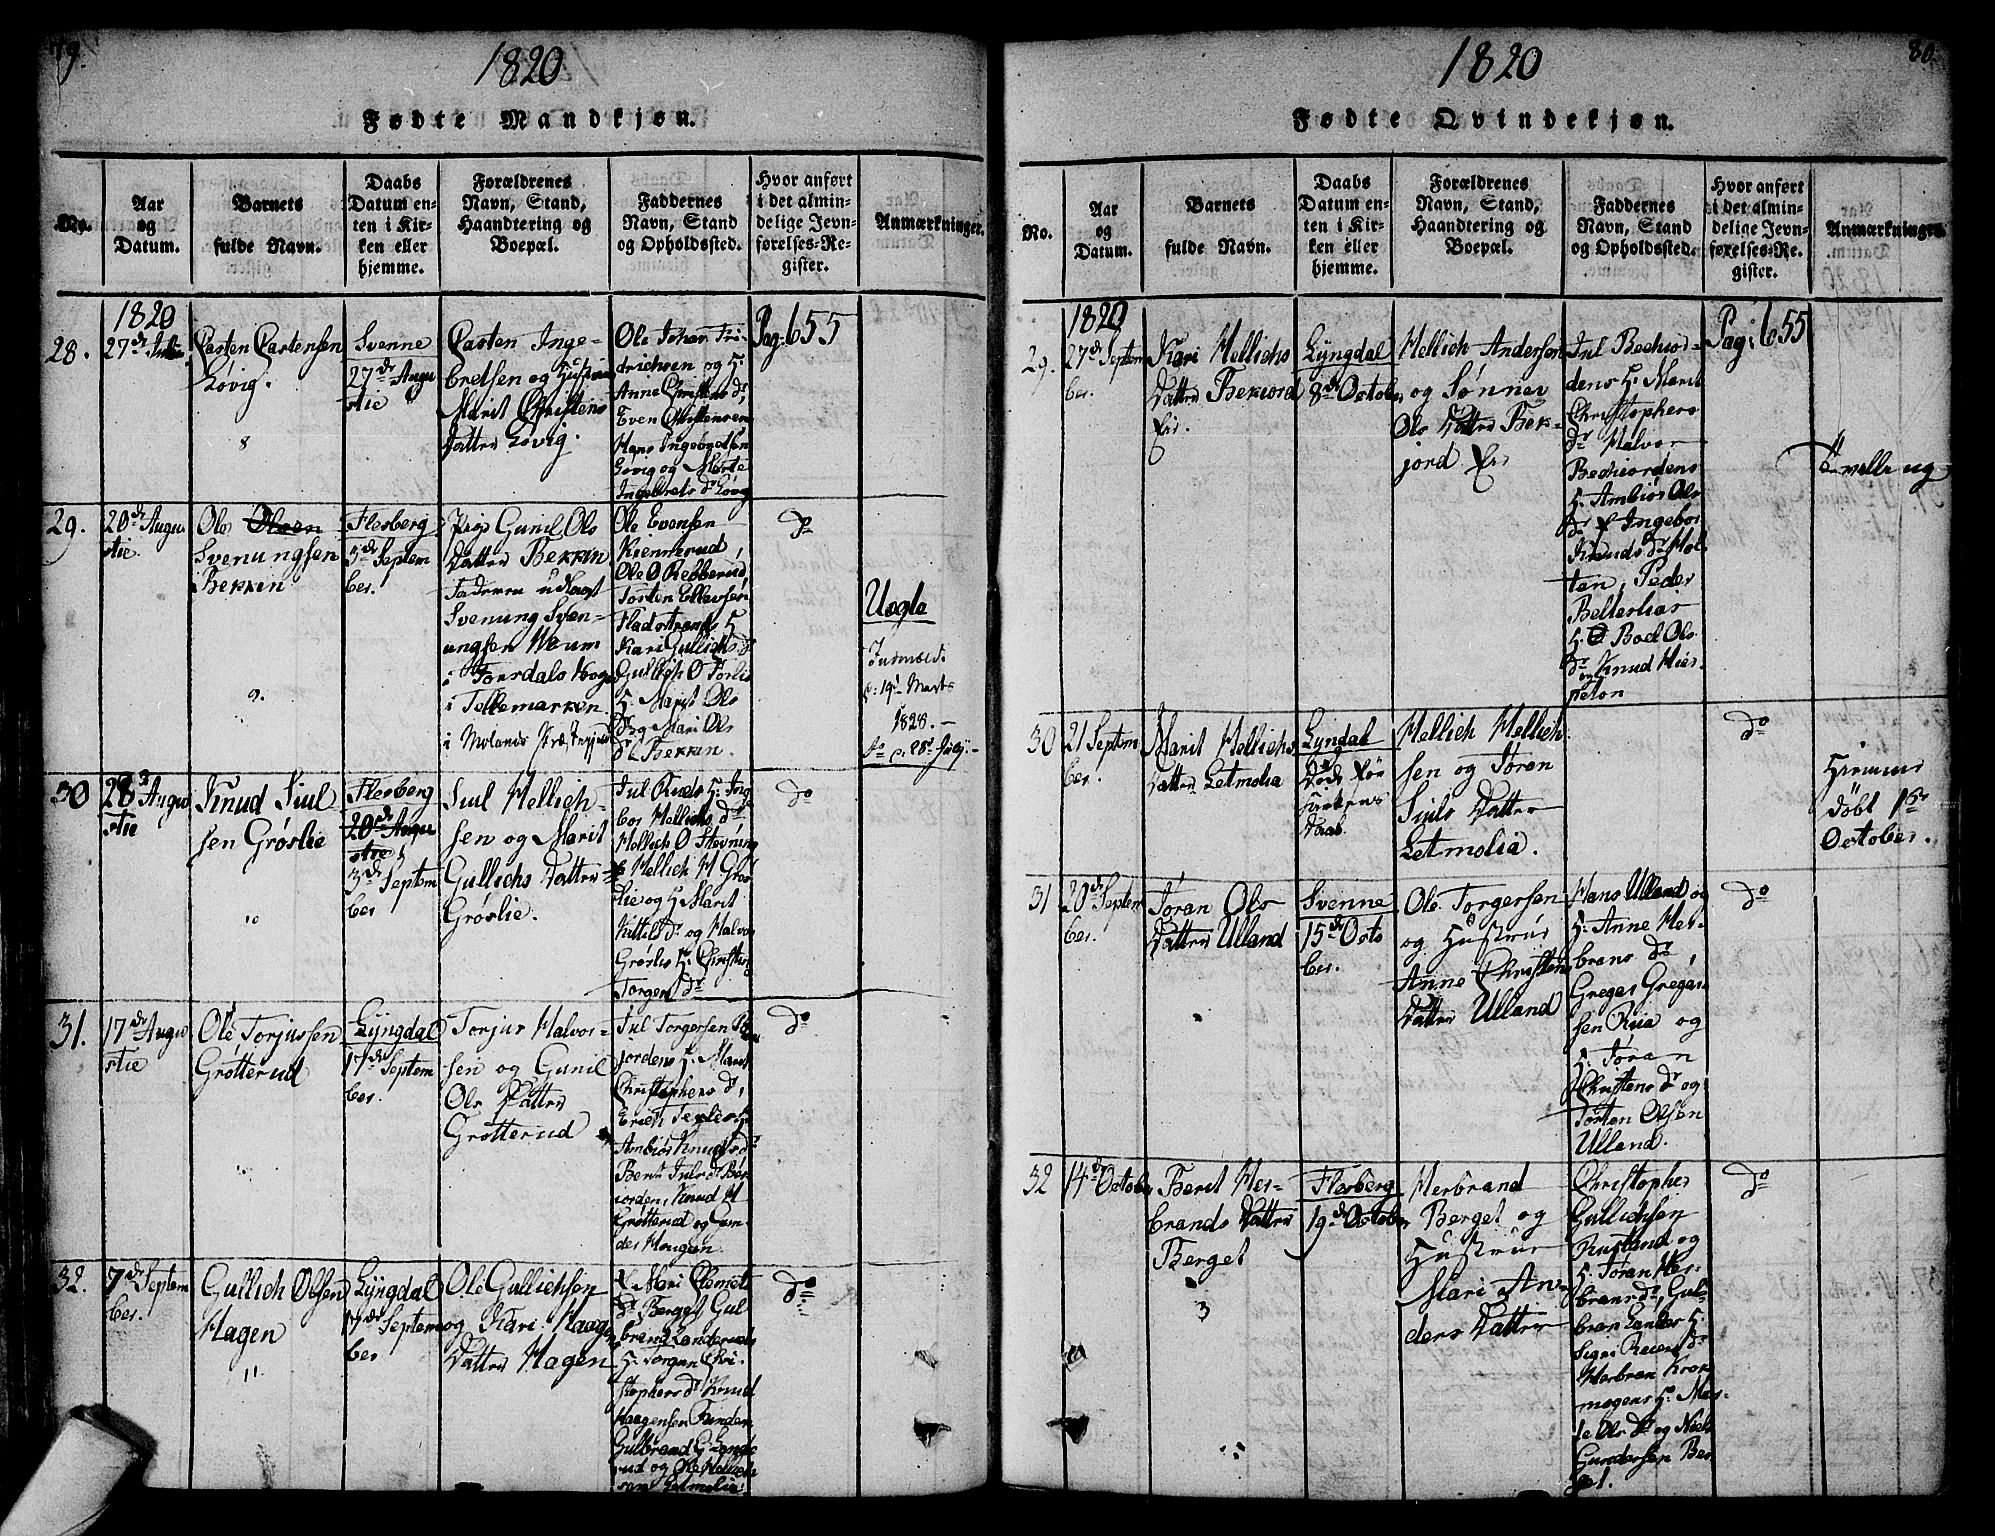 79.
1820
Fødte Mandkjøn.
No.
Aar
og
Datum.
Barnets
fulde Navn.
Daabs
Datum en-
ten i Kir-
ken eller
hjemme.
Forældrenes
Navn, Stand,
Haandtering og
Boepæl.
Faddernes
Navn, Stand
og Opholdssted.
Hvor anført
i det almin-
delige Jevn-
førelses-Re-
gister.
Anmærkninger.
28.
1820
27de Julii
Carsten Carstensen
Løvig.
8
Svenne
27de Augu
stie
Carsten Inge-
bretsen og Hustrue
Marit Christens
Datter Løvig.
Ole Johan Fri
drichsen og H.
Anne Christens dr,
Even Christensen
Hans Ingebretsen
Løvig og Marte
Ingebrets dr Løvig
Pag: 655
29.
20de Augu
stie.
Ole Olsen
Svenungsen
Bekken
9.
Flesberg
3de Septem
ber.
Pige Gunil Ols
Datter Bekken
Faderen udlagt
Svenung Sven-
ungsen Veum
i Tellemarken
i Molands Præstegjeld
Ole Evensen
Kiennerud,
Ole O Rebberud
Torsten Ellevsen
Fladstrands H
Kari Gullichs dr
Gullich O Førlie
H. Marit Ols
dr og Mari Ols
dr Bekken.
do
Uægte
1828.
30
28de Augu
stie
Knud Juul
sen Grøslie
10
Flesberg
20de Augu
stie
3de Septem
ber
Juul Hellich-
sen og Marit
Gullichs Datter
Grøslie.
Hellich O Støvning
Hellich H Grøs
lie og H Marit
Kittils dr og Halvor
Grøslie H. Christi
Torgers dr
do
31.
17de Augu
stie
Ole Torjussen
Grøtterud
Lyngdal
17de Septem
ber.
Torjus Halvor-
sen og Gunil
Ols Datter
Grøtterud
Jul Torgersen Bek
jordens H. Marit
Christophers dr,
Ambiør Knuds dr
Berit Juls dr Bek
iorden, Knud H
Grøtterud og Gun
der Haugen
do
32.
7de Septem
ber.
Gullich Olsen
Hagen
11
Lyngdal
17de Septem
ber
Ole Gullichsen
og Kari Haagens
Datter Hagen
Mari Clemets
dr Berget Gul
brand Landeruds
H. Jørgun Chri-
stophers dr Knud
Haagensen
Gulbrand
ud og Ole Hellich
sen Letmolie.
do
80.
1820
Fødte Qvindekjøn.
No.
Aar
og
Datum.
Barnets
fulde Navn.
Daabs
Datum en-
ten i Kir-
ken eller
hjemme.
Forældrenes
Navn, Stand,
Haandtering og
Boepæl.
Faddernes
Navn, Stand
og Opholdssted.
Hvor anført
i det almin-
delige Jevn-
førelses-Re-
gister.
Anmærkninger.
29.
1820
27de Septem
ber.
Kari Hellichs
Datter Bekiord
Eie.
Lyngdal
8de October
Hellich Andersen
og Sønnev
Ols Datter Bek-
jord Eie
Jul Bechior-
dens H. Marit
Christophers
dr Halvor
Bechiordens
H. Ambiør Ols
dr Ingebor
Knuds dr Hol
ten, Peder
Belterlias
H. Boel Ols
dr Knud Hier
peton
Pag: 655
Tvilling
30
21 Septem
ber.
Marit Hellichs
Datter Letmolia
Lyngdal
Døde før
Kirkens
Daab.
Hellich Hellich
sen og Jøran
Juuls Datter
Letmolia.
do
Hiemme
døbt 1ste
October.
31
20de Septem
ber.
Jøran Ols
Datter Ulland
Svenne
15de Octo
ber.
Ole Torgersen
og Hustrue
Anne Christens
Datter Ulland
Hans Ulland og
H. Anne Her-
brans dr
Gregar Gregar
sen Ruia og
H. Jøran
Christens dr og
Torsten Olsen
Ulland.
do
32
14de October
Berit Her-
brands Datter
Berget
3
Flesberg
19de October
Herbrand
Berget og
Hustrue
Mari An-
ders Datter
Christopher
Gullichsen
Rustand og
H. Jøran Her-
brans dr, Gul-
bran Lander H.
Sigri Reiers dr
Herbran Krok
mogens H. Mar-
te Ols dr og Niels
Gundersen Ber
get.
do